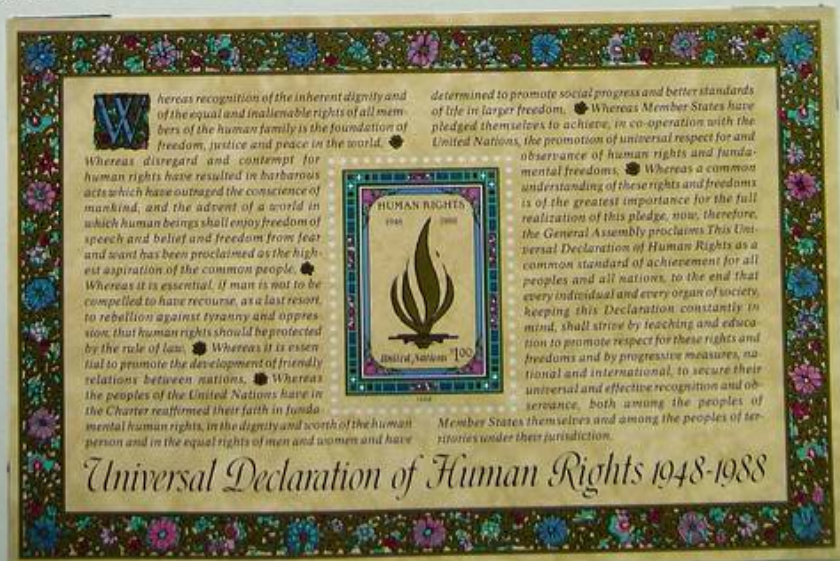 Whereas recognition of the inherent dignity and
of the equal and inalienable rights of all mem-
bers of the human family is the foundation of
freedom, justice and peace in the world,
Whereas disregard and contempt for
human rights have resulted in barbarous
acts which have outraged the conscience of
mankind, and the advent of a world in
which human beings shall enjoy freedom of
speech and belief and freedom from fear
and want has been proclaimed as the high-
est aspiration of the common people,
Whereas it is essential, if man is not to be
compelled to have recourse, as a last resort,
to rebellion against tyranny and oppres-
sion, that human rights should be protected
by the rule of law, Whereas it is essen-
tial to promote the development of friendly
relations between nations, Whereas
the peoples of the United Nations have in
the Charter reaffirmed their faith in funda-
mental human rights, in the dignity and worth of the human
person and in the equal rights of men and women and have
determined to promote social progress and better standards
of life in larger freedom, Whereas Member States have
pledged themselves to achieve, in co-operation with the
United Nations, the promotion of universal respect for and
observance of human rights and funda-
mental freedoms, Whereas a common
understanding of these rights and freedoms
is of the greatest importance for the full
realization of this pledge, now, therefore,
the General Assembly proclaims This Uni-
versal Declaration of Human Rights as a
common standard of achievement for all
peoples and all nations, to the end that
every individual and every organ of society,
keeping this Declaration constantly in
mind, shall strive by teaching and educa-
tion to promote respect for these rights and
freedoms and by progressive measures, na-
tional and international, to secure their
universal and effective recognition and ob-
servance, both among the peoples of
Member States themselves and among the peoples of ter-
ritories under their jurisdiction.
HUMAN RIGHTS
1948 1988
United Nations $1.00
Universal Declaration of Human Rights 1948-1988